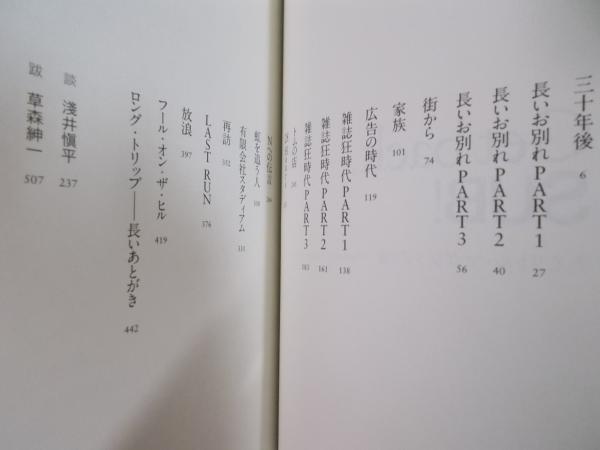 三十年後 6
長いお別れ PART 1 27
長いお別れ PART 2 40
長いお別れ PART 3 56
街から 74
家族 101
広告の時代 119
雑誌狂時代 PART 1 138
雑誌狂時代 PART 2 161
雑誌狂時代 PART 3 183
トムの店
Nへの伝言
虹を追う人
有限会社スタディアム
再訪 352
LAST RUN 376
放浪 397
フール・オン・ザ・ヒル 419
ロング・トリップ──長いあとがき 442
談 淺井愼平 237
跋 草森紳一 507